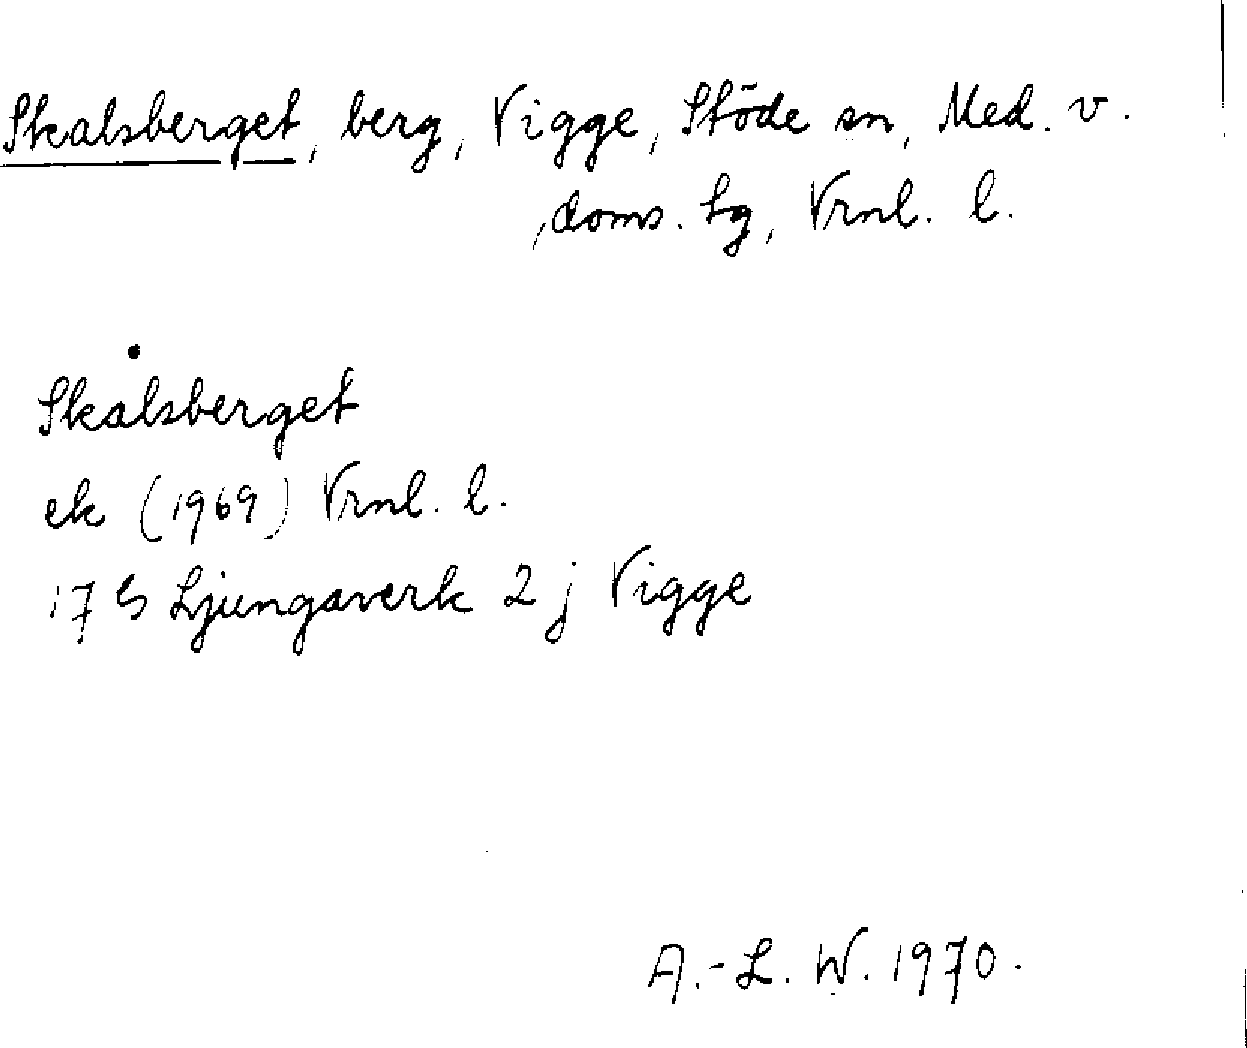 Skalsberget, berg, Vigge, Stöde sn, Med. v.
doms. tg, Vrnl. l.
Skalsberget
ek (1969) Vrnl. l.
17 G Ljungaverk 2 j Vigge
A.-L. W. 1970.